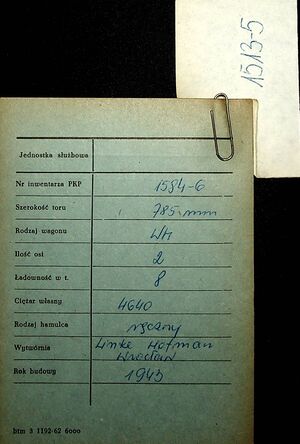 1513-5
Jednostka służbowa
Nr inwentarza PKP 1584-6
Szerokość toru 785 mm
Rodzaj wagonu WH
Ilość osi 2
Ładowność w t. 8
Ciężar własny 4640
Rodzaj hamulca ręczny
Wytwórnia Linke Hofman
Wrocław
Rok budowy 1943
btm 3 1192-62 6000